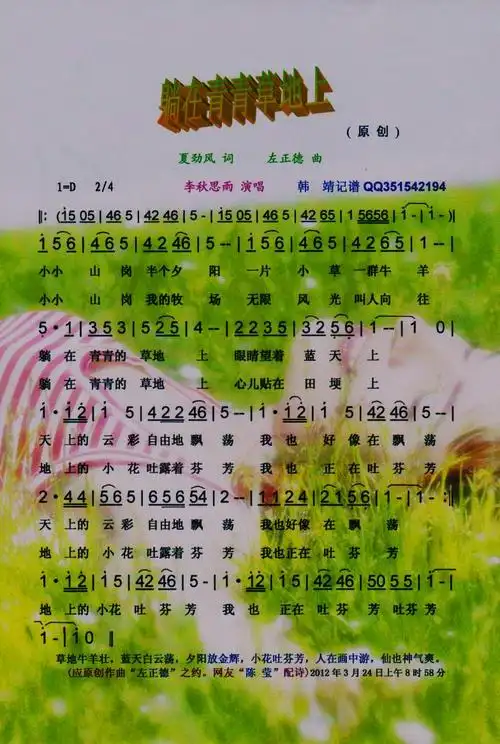 躺在青青草地上
（原创）
夏劲风 词 左正德 曲
1=D 2/4 李秋思雨 演唱 韩 靖记谱QQ351542194
‖: (15 05 | 46 5 | 42 46 | 5 - | 15 05 | 46 5 | 42 65 | 1 5656 | 1 - | 1 - )|
1 5 6 | 4 6 5 | 42 46 | 5 -- |
小小 山 岗 半个夕 阳 一片 小 草 一群 牛 羊
小小 山 岗 我的牧 场 无限 风 光 叫人向 往
5 · 1 | 3 5 3 | 5 2 5 | 4 -- |
躺 在 青青的 草地 上 眼睛望着 蓝 天 上
躺 在 青青的 草地 上 心儿贴在 田 埂 上
天 上的 云 彩 自由地 飘 荡 我 也 好 像 在 飘 荡
地 上的 小 花 吐露着 芬 芳 我 也 正 在 吐 芬 芳
2 · 4 4 | 5 6 5 | 56 54 | 2 -- |
天 上的 云 彩 自由地 飘 荡 我也好像 在 飘 荡
地 上的 小 花 吐露着 芬 芳 我也正在 吐 芬 芳
1 · 1 2 | 1 5 | 42 46 | 5 - | 1 · 12 | 1 5 | 42 46 | 50 55 | 1 - | 1 - |
地 上的 小花 吐 芬 芳 我 也 正在 吐 芬 芳 吐芬 芳
1 - | 1 0 ‖
草地牛羊壮，蓝天白云荡，夕阳放金辉，小花吐芬芳，人在画中游，仙也神气爽。
（应原创作曲“左正德”之约。网友“陈 莹”配诗）2012 年 3 月 24 日上午 8 时 58 分